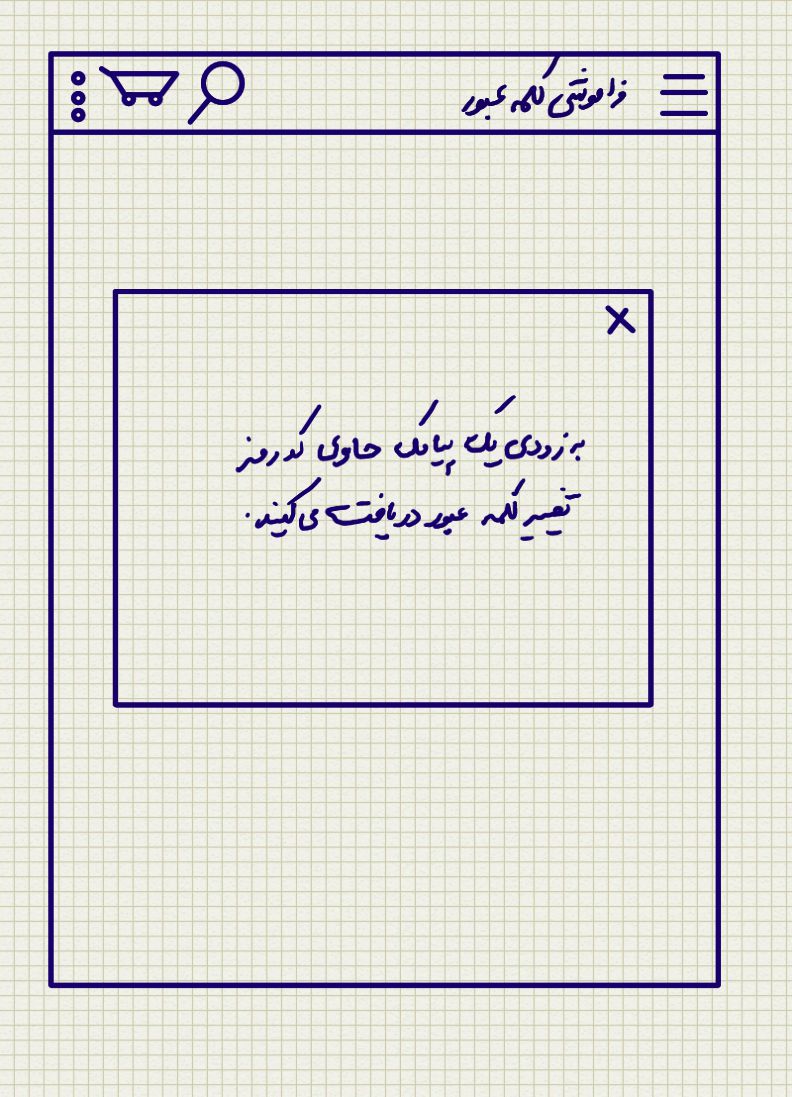 فراموشی کلمه عبور
بزودی یک پیامک حاوی کد رمز
تغییر کلمه عبور دریافت می‌کنید.